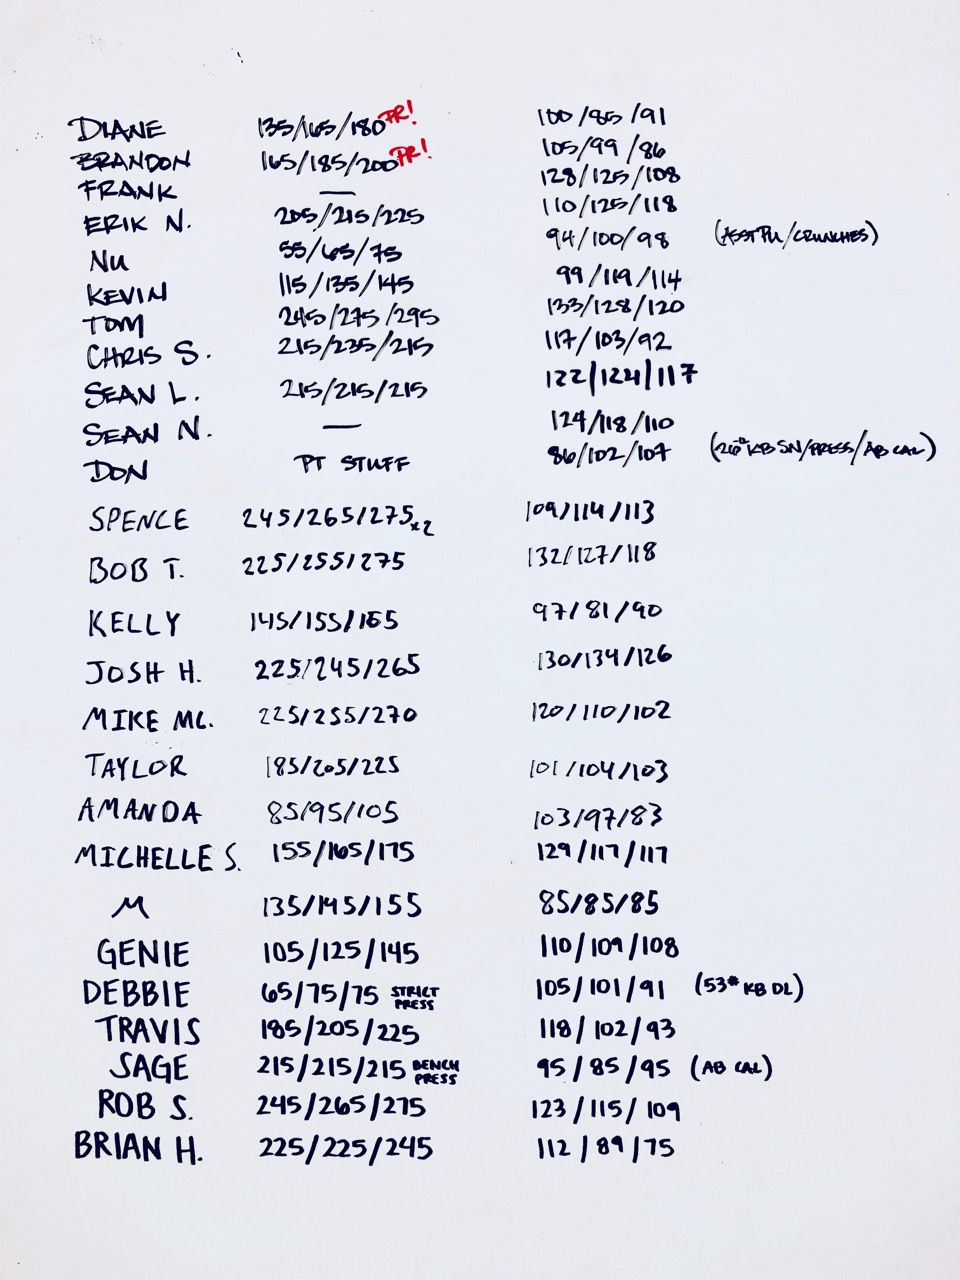 DIANE 135/165/180 PR! 100/85/91
BRANDON 165/185/200 PR! 105/99/86
FRANK — 128/125/108
ERIK N. 205/215/225 110/125/118
NU 55/65/75 94/100/98 (ASST PU/CRUNCHES)
KEVIN 115/135/145 99/119/114
TOM 245/275/295 133/128/120
CHRIS S. 215/235/215 117/103/92
SEAN L. 215/215/215 122/124/117
SEAN N. — 124/118/110
DON PT STUFF 86/102/107 (26# KB SN/PRESS/AB CAL)
SPENCE 245/265/275x2 109/114/113
BOB T. 225/255/275 132/127/118
KELLY 145/155/165 97/81/90
JOSH H. 225/245/265 130/134/126
MIKE MC. 225/255/270 120/110/102
TAYLOR 185/205/225 101/104/103
AMANDA 85/95/105 103/97/83
MICHELLE S. 155/165/175 129/117/117
M 135/145/155 85/85/85
GENIE 105/125/145 110/109/108
DEBBIE 65/75/75 STRICT PRESS 105/101/91 (53# KB DL)
TRAVIS 185/205/225 118/102/93
SAGE 215/215/215 BENCH PRESS 95/85/95 (AB CAL)
ROB S. 245/265/275 123/115/109
BRIAN H. 225/225/245 112/89/75